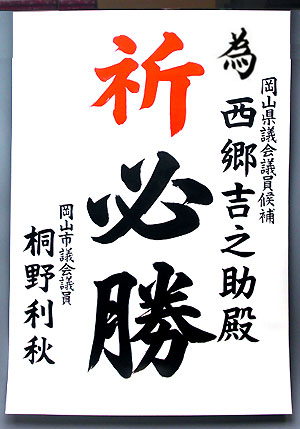 為
岡山県議会議員候補
西郷吉之助殿
祈必勝
岡山市議会議員
桐野利秋